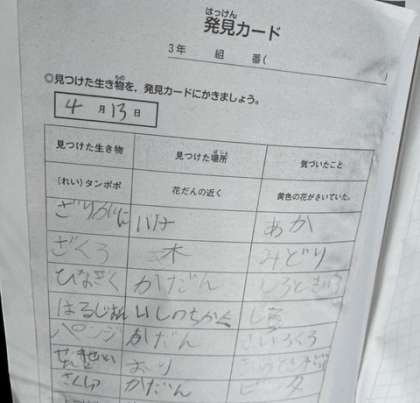 はっけん
発見カード
3年 組 番(
◎見つけた生き物を、発見カードにかきましょう。
4月13日
見つけた生き物 見つけた場所 気づいたこと
〔れい〕タンポポ 花だんの近く 黄色の花がさいていた。
ざりがに いけ あか
ざくろ 木 みどり
ひなぎく かだん しろときいろ
はるじおん いしのちかく しろ
パンジー かだん
かだん